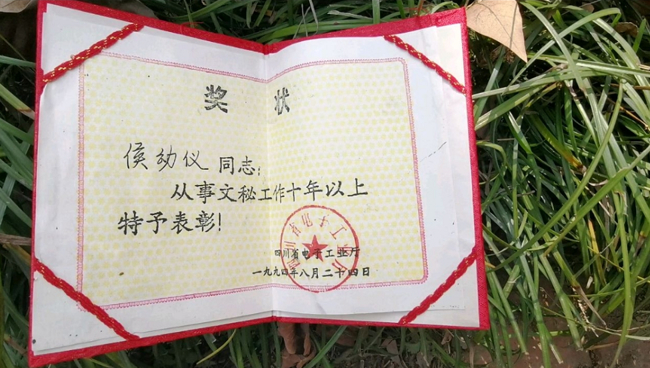 奖 状
侯幼仪 同志:
从事文秘工作十年以上
特予表彰!
四川省电子工业厅
一九九四年八月二十四日